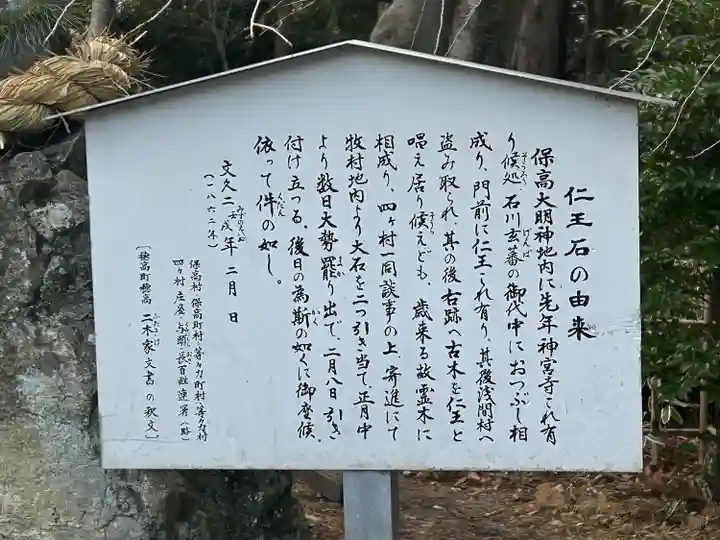 仁王石の由来
保高大明神地内に先年神宮寺これ有
り候処、石川玄蕃の御代中におつぶし相
成り、門前に仁王これ有り、其後浅間村へ
盗み取られ、其の後古跡へ古木を仁王と
唱え居り候えども、歳来る故霊木に
相成り、四ヶ村一同談事の上、寄進にて
牧村地内より大石を二つ引き当て、正月中
より数日大勢罷り出で、二月八日引き
付け立つる。後日の為斯の如くに御座候。
依って件の如し。
文久二壬戌年二月 日
(一八六二年)
保高村、保高町村、等々力町村、等々力村
四ヶ村庄屋、与頭、長百姓連署(略)
〔穂高町穂高 二木家文書の釈文〕